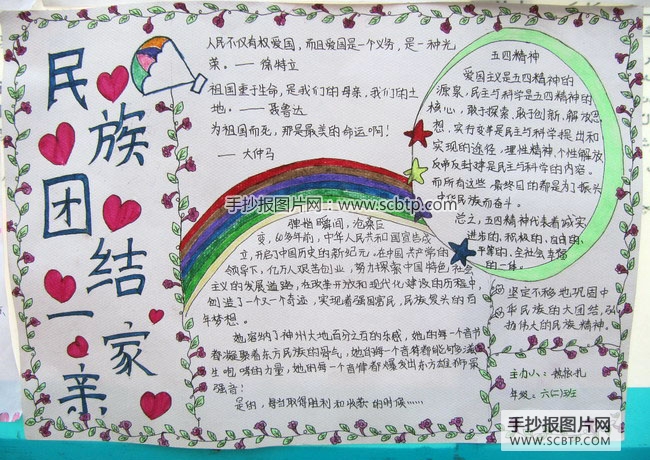 民族团结一家亲
人民不仅有权爱国,而且爱国是一个义务,是一种光
荣。——徐特立
祖国重于生命,是我们的母亲,我们的土
地。——聂鲁达
为祖国而死,那是最美的命运啊!
——大仲马
五四精神
爱国主义是五四精神的
源泉,民主与科学是五四精神的
核心,敢于探索、敢于创新、解放思
想、实行变革是民主与科学提出和
实现的途径,理性精神、个性解放
反帝反封建是民主与科学的内容。
而所有这些,最终目的都是为了振兴
中华民族而奋斗。
总之,五四精神代表着诚实
进步的、积极的、自由的、
平等的
的一体。
手抄报图片网:www.scbtp.com
弹指瞬间,沧桑巨
变,60多年前,中华人民共和国宣告成
立,开启中国历史的新纪元。在中国共产党的
领导下,亿万人艰苦创业,努力探索中国特色社会
主义的发展道路,在改革开放和现代化建设的历程中,
创造了一个又一个奇迹,实现着强国富民,民族复兴的百
年梦想。
她容纳了神州大地百分之百的乐感,她的每一个音节
都凝聚着东方民族的骨气,她的每一个音符都能
生咆哮的力量,她的每一个音律都爆发出东方雄狮的
强音!
是的,每当取得胜利和收获的时候……
坚定不移地巩固中
华民族的大团结,弘
扬伟大的民族精神。
主办人:
年级:六(二)班
手抄报图片网
www.SCBTP.com